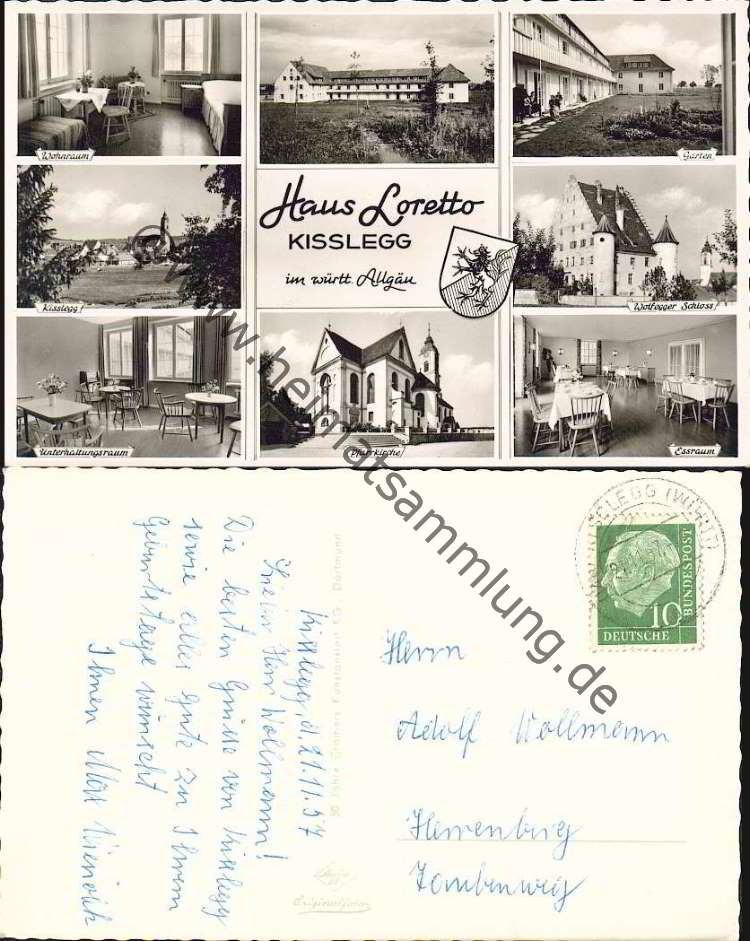 Wohnraum
Garten
Haus Loretto
KISSLEGG
im württ. Allgäu
Kisslegg
Wolfegger Schloss
Unterhaltungsraum
Pfarrkirche
Essraum
www.heimatsammlung.de
Kisslegg, d. 21.11.57
Lieber Herr Wollmann!
Die besten Grüße von Kisslegg
sowie alles Gute zu Ihrem
Geburtstage wünscht
Ihnen Max
50 Jahre Gebr. Metz Dortmund
KISSLEGG (WÜRTT)
10
DEUTSCHE
BUNDESPOST
Herrn
Adolf Wollmann
Herrenberg